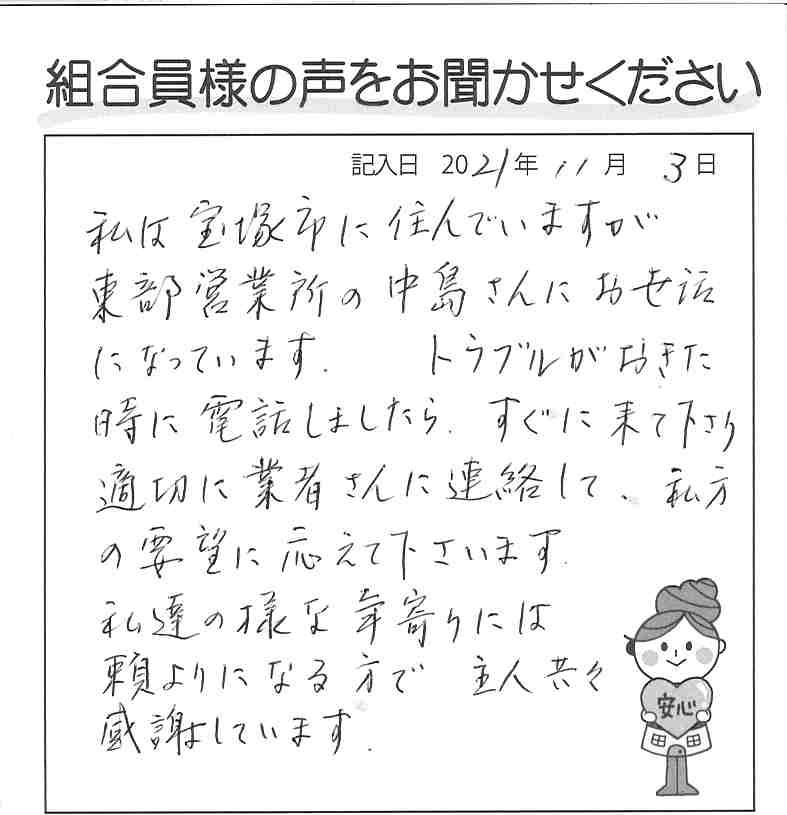 組合員様の声をお聞かせください
記入日 2021年 11月 3日
私は宝塚市に住んでいますが
東部営業所の中島さんにお世話
になっています. トラブルがおきた
時に電話しましたら. すぐに来て下さり
適切に業者さんに連絡して、私方
の要望に応えて下さいます.
私達の様な年寄りには
頼よりになる方で 主人共々
感謝しています.
安心